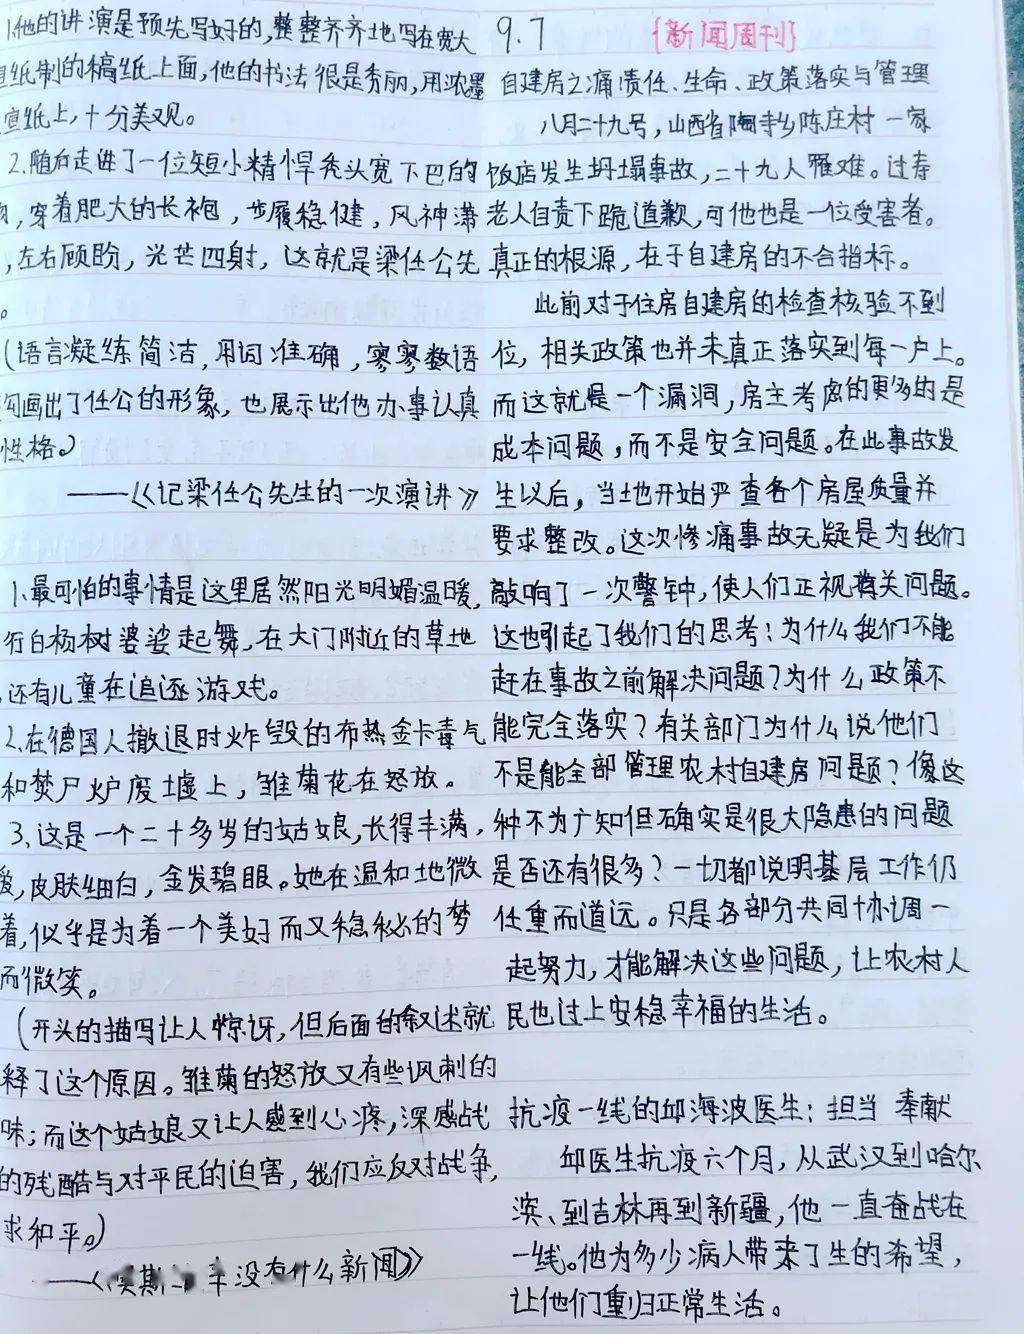 1.他的讲演是预先写好的,整整齐齐地写在宽大
宣纸制的稿纸上面,他的书法很是秀丽,用浓墨
宣纸上,十分美观。
2.随后走进了一位短小精悍秃头宽下巴的
,穿着肥大的长袍,步履稳健,风神潇
,左右顾盼,光芒四射,这就是梁任公先
。
(语言凝练简洁,用词准确,寥寥数语
勾画出了任公的形象,也展示出他办事认真
性格。)
——《记梁任公先生的一次演讲》
1.最可怕的事情是这里居然阳光明媚温暖,
行白杨树婆娑起舞,在大门附近的草地
,还有儿童在追逐游戏。
2.在德国人撤退时炸毁的布热金卡毒气
和焚尸炉废墟上,雏菊花在怒放。
3.这是一个二十多岁的姑娘,长得丰满,
爱,皮肤细白,金发碧眼。她在温和地微
着,似乎是为着一个美好而又稳秘的梦
而微笑。
(开头的描写让人惊讶,但后面的叙述就
释了这个原因。雏菊的怒放又有些讽刺的
味;而这个姑娘又让人感到心疼,深感战
的残酷与对平民的迫害,我们应反对战争,
求和平。)
——《斯 辛没有什么新闻》
9.7 {新闻周刊}
自建房之痛:责任、生命、政策落实与管理
八月二十九号,山西省陶寺乡陈庄村一家
饭店发生坍塌事故,二十九人罹难。过寿
老人自责下跪道歉,可他也是一位受害者。
真正的根源,在于自建房的不合指标。
此前对于住房自建房的检查核验不到
位,相关政策也并未真正落实到每一户上。
而这就是一个漏洞,房主考虑的更多的是
成本问题,而不是安全问题。在此事故发
生以后,当地开始严查各个房屋质量并
要求整改。这次惨痛事故无疑是为我们
敲响了一次警钟,使人们正视相关问题。
这也引起了我们的思考:为什么我们不能
赶在事故之前解决问题?为什么政策不
能完全落实?有关部门为什么说他们
不是能全部管理农村自建房问题?像这
种不为广知但确实是很大隐患的问题
是否还有很多?一切都说明基层工作仍
任重而道远。只是各部分共同协调一
起努力,才能解决这些问题,让农村人
民也过上安稳幸福的生活。
抗疫一线的邱海波医生:担当 奉献
邱医生抗疫六个月,从武汉到哈尔
滨、到吉林再到新疆,他一直奋战在
一线。他为多少病人带来了生的希望,
让他们重归正常生活。